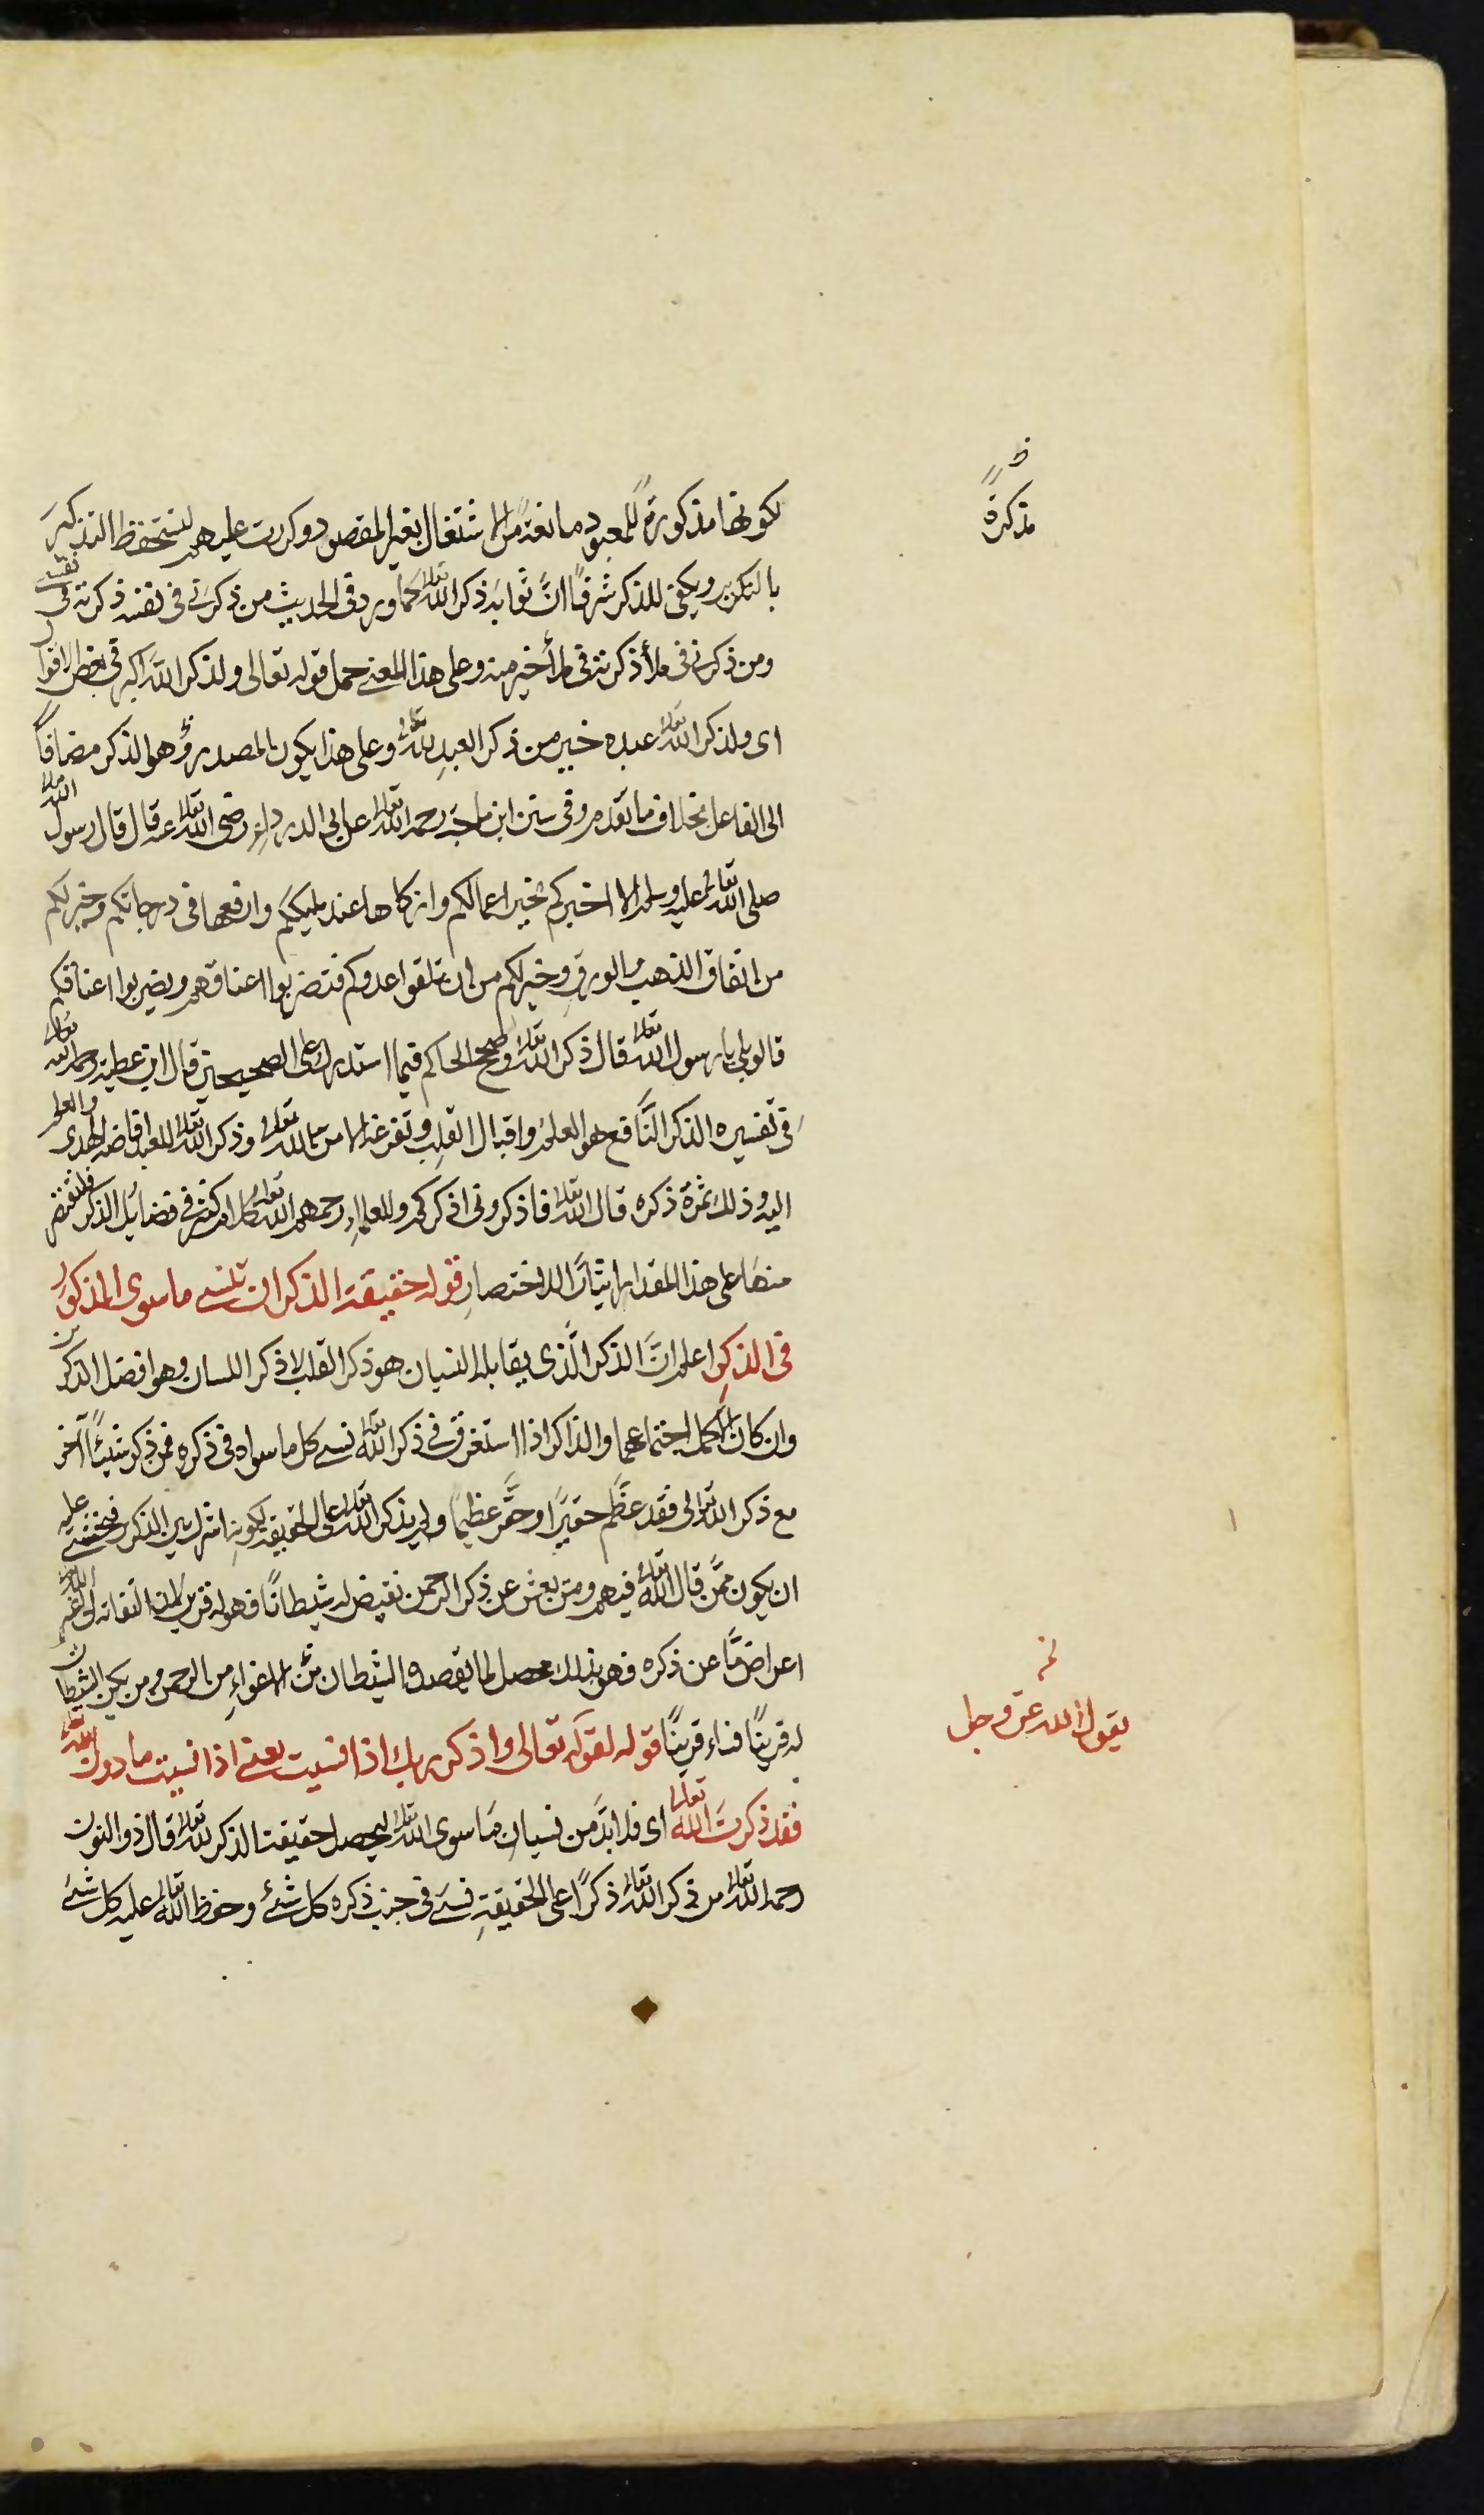 لكونها مذكورة للمعبود مانعة من الاشتغال بغير المقصود وكررت عليهم لتستحفظ التذكير
بالتكرير ويكفى للذكر شرفا انّ ثوابه ذكر الله تعالى كما ورد فى الحديث من ذكرنى فى نفسه ذكرته فى نفسى
ومن ذكرنى فى ملأ ذكرته فى ملأ خير منه وعلى هذا المعنى حمل قوله تعالى ولذكر الله اكبر فى بعض الاقوال
اى ولذكر الله تعالى عبده خير من ذكر العبد لله تعالى وعلى هذا يكون المصدر وهو الذكر مضافاً
الى الفاعل بخلاف ما تقدم وفى سنن ابن ماجه رحمه الله تعالى عن ابى الدرداء رضى الله تعالى عنه قال قال رسول الله
صلى الله تعالى عليه وسلم الا اخبركم بخير اعمالكم وازكاها عند مليككم وارفعها فى درجاتكم وخير لكم
من انفاق الذهب والورق وخير لكم من ان تلقوا عدوكم فتضربوا اعناقهم ويضربوا اعناقكم
قالوا بلى يا رسول الله تعالى قال ذكر الله تعالى وصحح الحاكم فيما استدرك على الصحيحين قال ابن عطية رحمه الله تعالى
فى تفسيره الذكر النَّافع هو العلم واقبال القلب وتفرغه الا من الله تعالى وذكر الله تعالى للعبد افاضة الهدى والعلم
اليه وذلك ثمرة ذكره قال الله تعالى فاذكرونى اذكركم وللعلماء رحمهم الله تعالى كلام كثير فى فضائل الذكر فلنقتصر
منها على هذا المقدار ايثارًا للاختصار قوله حقيقة الذكر ان تنسى ما سوى المذكور
فى الذكر اعلم انّ الذكر الّذى يقابله النسيان هو ذكر القلب لا ذكر اللسان وهو افضل الذكرين
وان كان الاكمل اجتماعهما والذاكر اذا استغرق فى ذكر الله تعالى نسى كل ما سواه فى ذكره فمن ذكر شيئًا آخر
مع ذكر الله تعالى فقد عظّم حقيرًا وحقّر عظيمًا ولم يذكر الله تعالى على الحقيقة لكونه اشرك بين الذكر فيخشى عليه
ان يكون ممّن قال الله تعالى فيهم ومن يعش عن ذكر الرحمن نقيض له شيطانًا فهو له قرين لانّ التفاته الى غير الله
اعراضًا عن ذكره فهو بذلك محصل لما يقصده الشيطان من الاغواء من الرحمن ومن يكن الشيطان
له قرينًا فساء قرينًا قوله لقوله تعالى واذكر ربك اذا نسيت يعنى اذا نسيت ما دون الله
فقد ذكرت الله تعالى اى فلا بدّ من نسيان ما سوى الله تعالى ليحصل حقيقة الذكر لله تعالى قال ذو النون
رحمه الله تعالى من ذكر الله تعالى ذكرًا على الحقيقة نسى فى جنب ذكره كل شئ وحفظ الله تعالى عليه كل شئ
ظ
مذكرة
نخ
يقول الله عز وجل